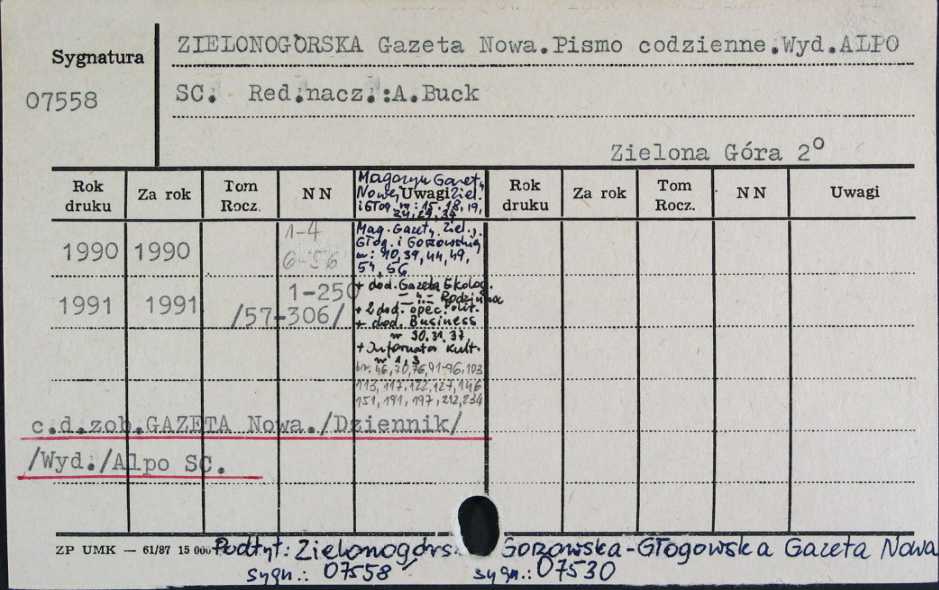 Sygnatura
07558
ZIELONOGÓRSKA Gazeta Nowa.Pismo codzienne.Wyd.ALPO
SC. Red.nacz.:A.Buck
Zielona Góra 2°
Rok druku Za rok Tom Rocz. NN Uwagi Rok druku Za rok Tom Rocz. NN Uwagi
Magazyn Gazety
Nowej Ziel.
i Głog. nr: 15, 18, 19,
24, 29, 34
1990 1990 1-4
6-56
Mag. Gazety Ziel.,
Głog. i Gorzowskiej
nr: 10, 39, 44, 49,
54, 56
1991 1991 1-250
/57-306/
+ dod. Gazeta Ekolog.
- " - Rodzinna
+ 2 dod. opec. Polit.
+ dod. Business
nr 30, 31, 37
+ Informator Kult.
nr 1, 3
nr. 46, 70, 76, 91-96, 103
113, 117, 122, 127, 146
151, 191, 197, 212, 234
c.d.zob.GAZETA Nowa./Dziennik/
/Wyd./Alpo SC.
ZP UMK — 61/87 15 000
Podtyt: Zielonogórska Gorzowska-Głogowska Gazeta Nowa
sygn.: 07558 sygn.: 07530